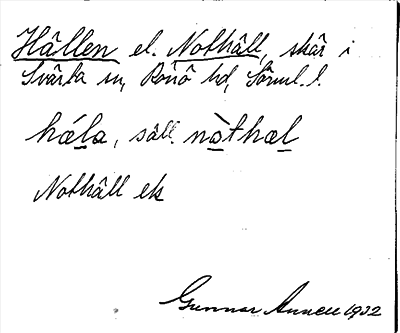 Hållen el. Nothåll, skär i
Svärta sn, Rönö hd, Sörml. l.
håla, säll. nòthal
Nothåll ek
Gunnar 1932